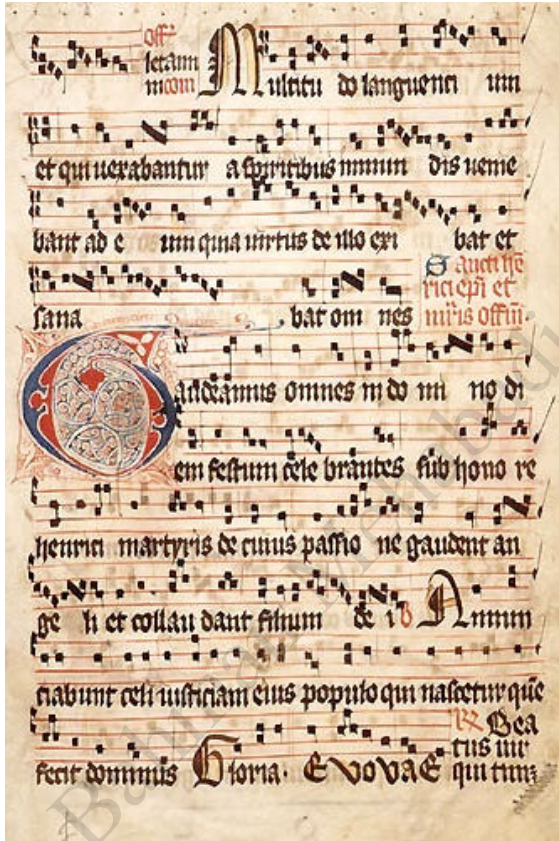 off͞
letam Multitu do languenti um
m com
et qui uexabantur a spiritibus inmun dis ueni e
bant ad e um quia uirtus de illo exi bat et
sana bat om nes
Sancti he͞
rici ep͞i et
m͞ris offm͞
Gaudeamus omnes in do mi no di
em festum cele brantes sub hono re
henrici martyris de cuius passio ne gaudent an
ge li et collau dant filium de i Annun
ciabunt celi iusticiam eius populo qui nascetur que͞
fecit dominus Gloria. EVOVAE
Bea
tus uir
qui tim͞